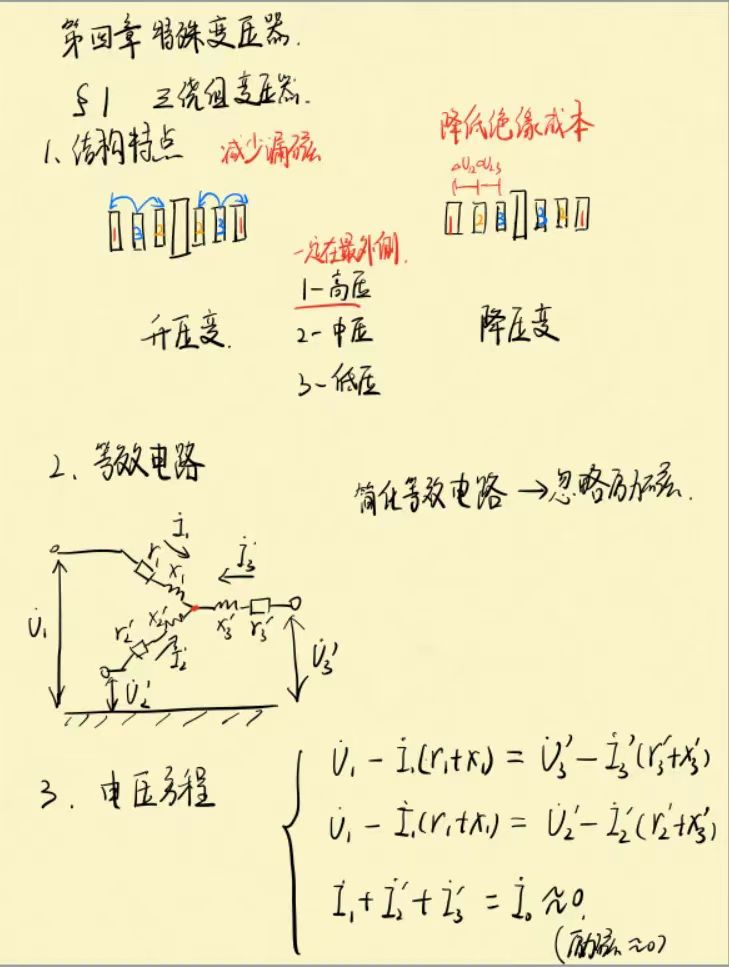 第四章 特殊变压器.
§1 三绕组变压器.
1、结构特点 减少漏磁 降低绝缘成本
ΔU12 ΔU23
1 3 2 2 3 1
1 2 3 3 2 1
一定在最外侧.
1-高压
升压变. 2-中压 降压变
3-低压
2、等效电路
简化等效电路 → 忽略励磁.
İ1
r1 x1 İ3
U̇1 r2' x2' İ2 x3' r3'
U̇2' U̇3'
3. 电压方程
U̇1 - İ1(r1+x1) = U̇3' - İ3'(r3'+x3')
U̇1 - İ1(r1+x1) = U̇2' - İ2'(r2'+x3')
İ1 + İ2' + İ3' = İ0 ≈0.
(励磁≈0)